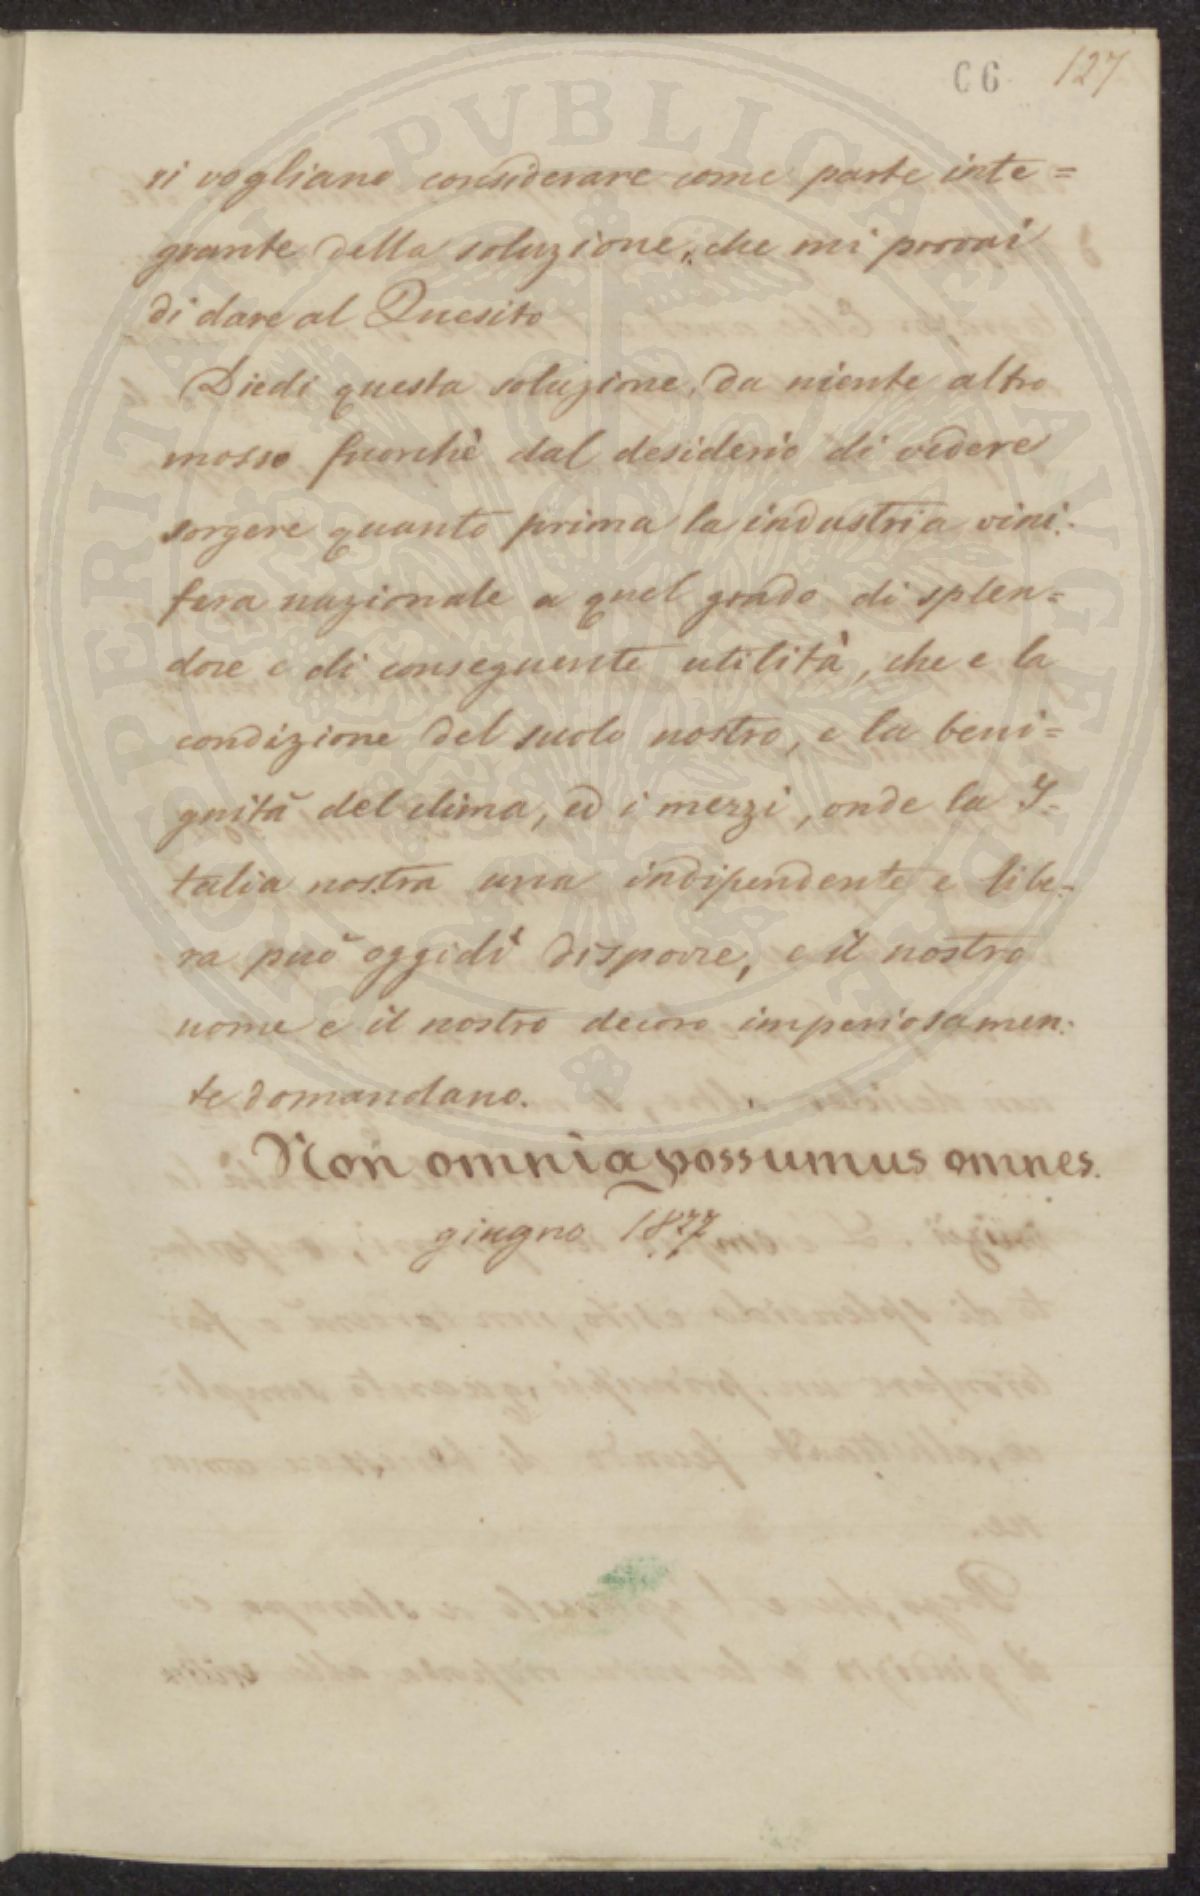 C6 127
si vogliano considerare come parte inte=
grante della soluzione, che mi provai
di dare al Quesito
Diedi questa soluzione, da niente altro
mosso fuorchè dal desiderio di vedere
sorgere quanto prima la industria vini-
fera nazionale a quel grado di splen=
dore e di conseguente utilità, che e la
condizione del suolo nostro, e la beni=
gnità del clima, ed i mezzi, onde la I-
talia nostra una indipendente e libe-
ra può oggidì disporre, e il nostro
nome e il nostro decoro imperiosamen-
te domandano.
Non omnia possumus omnes.
giugno 1877
PROSPERITATI PVBLICAE AVGENDAE